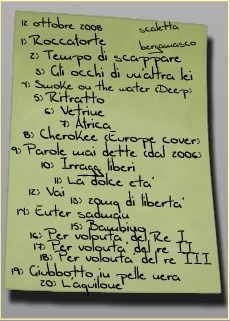 12 ottobre 2008 scaletta
1) Roccaforte bergamasco
2) Tempo di scappare
3) Gli occhi di un'altra lei
4) Smoke on the water (Deep)
5) Ritratto
6) Vetrine
7) Africa
8) Cherokee (Europe cover)
9) Parole mai dette (dal 2006)
10) liberi
11) La dolce eta'
12) Vai
13) 20mq di liberta'
14) Enter sadman
15) Bambino
16) Per volonta del Re I
17) Per volonta del re II
18) Per volonta del re III
19) Giubbotto in pelle nera
20) L'aquilone